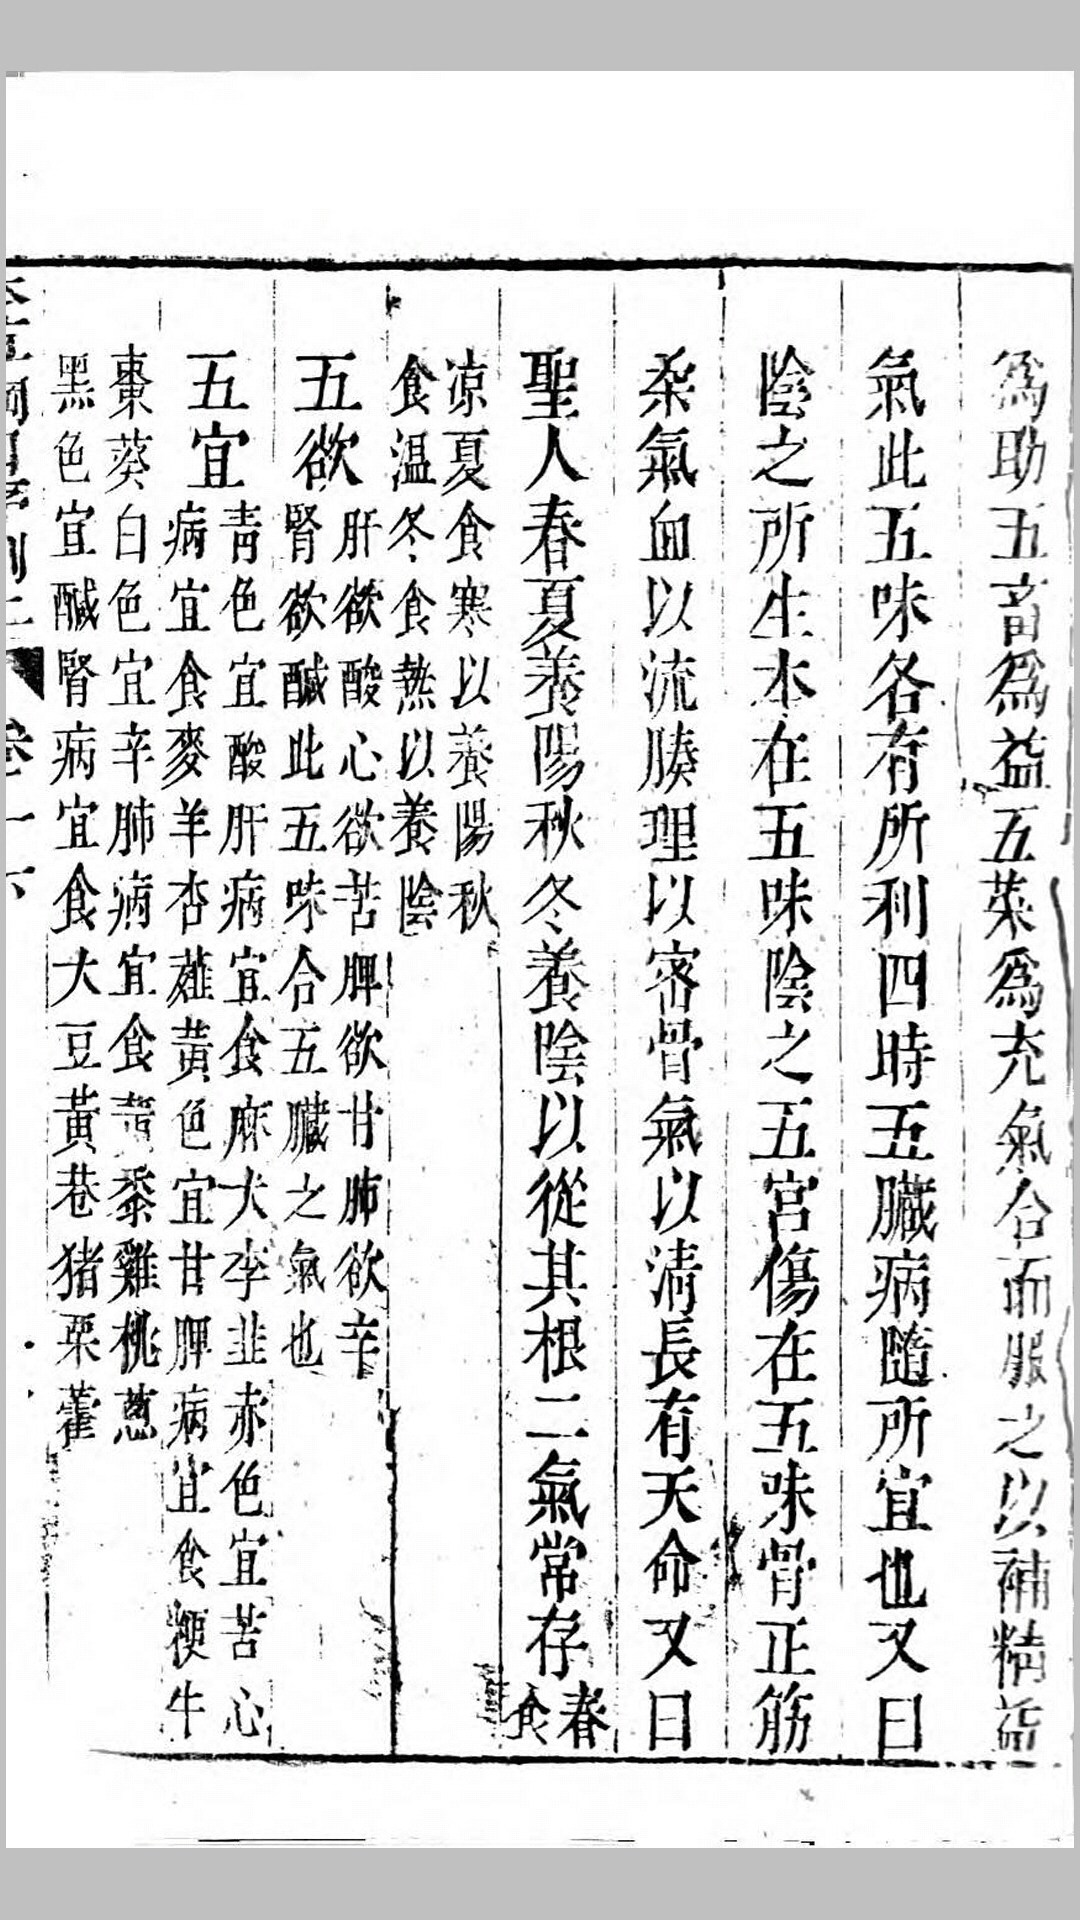 爲助五畜爲益五菜爲充氣合而服之以補精益
氣此五味各有所利四時五臟病隨所宜也又曰
陰之所生本在五味陰之五宮傷在五味骨正筋
柔氣血以流腠理以密骨氣以淸長有天命又曰
聖人春夏養陽秋冬養陰以從其根二氣常存春
食
凉夏食寒以養陽秋
食温冬食熱以養陰
五欲肝欲酸心欲苦脾欲甘肺欲辛
腎欲醎此五味合五臟之氣也
五宜靑色宜酸肝病宜食麻犬李韭赤色宜苦心
病宜食麥羊杏薤黃色宜甘脾病宜食粳牛
棗葵白色宜辛肺病宜食黃黍雞桃蔥
黑色宜醎腎病宜食大豆黃巷猪栗藿